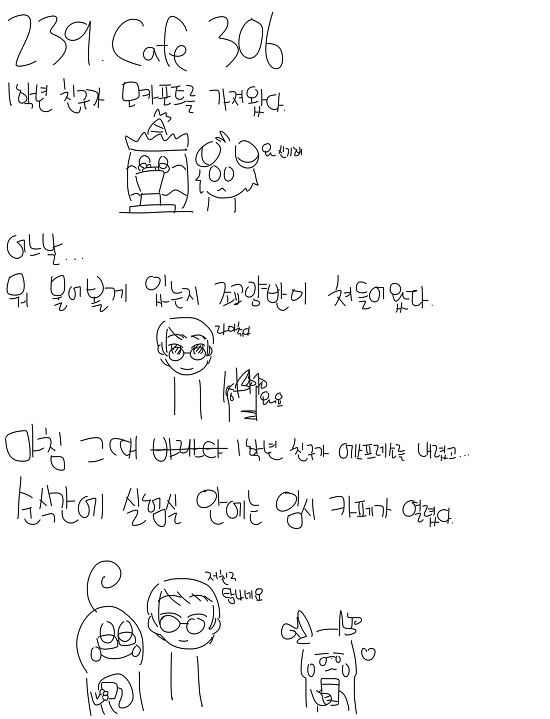 239. Cafe 306
1학년 친구가 모카포트를 가져왔다.
오 신기해
어느날...
뭐 물어볼게 있는지 조교양반이 쳐들어왔다.
마침 그 때 1학년 친구가 에스프레소를 내렸고...
순식간에 실험실 안에는 임시 카페가 열렸다.
저 친구
탐나네요